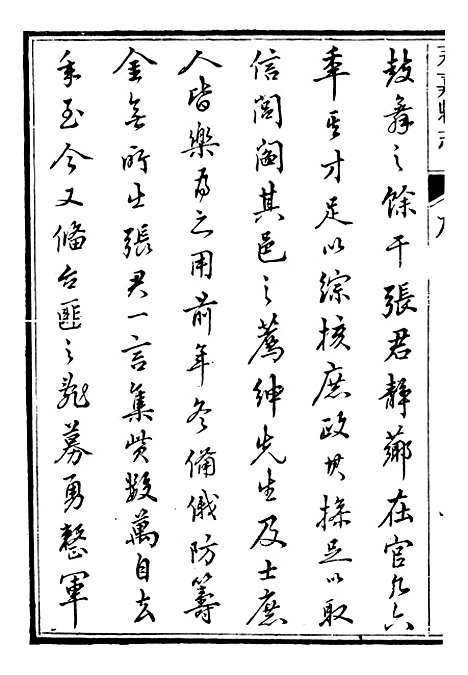 永嘉縣志
鼓舞之餘干張君靜薌在官九六
年其才足以綜核庶政其操足以取
信閭閻其邑之薦紳先生及士庶
人皆樂為之用前年冬備俄防籌
金無所出張君一言集貲數萬自去
年至今又備台匪之亂募勇整軍